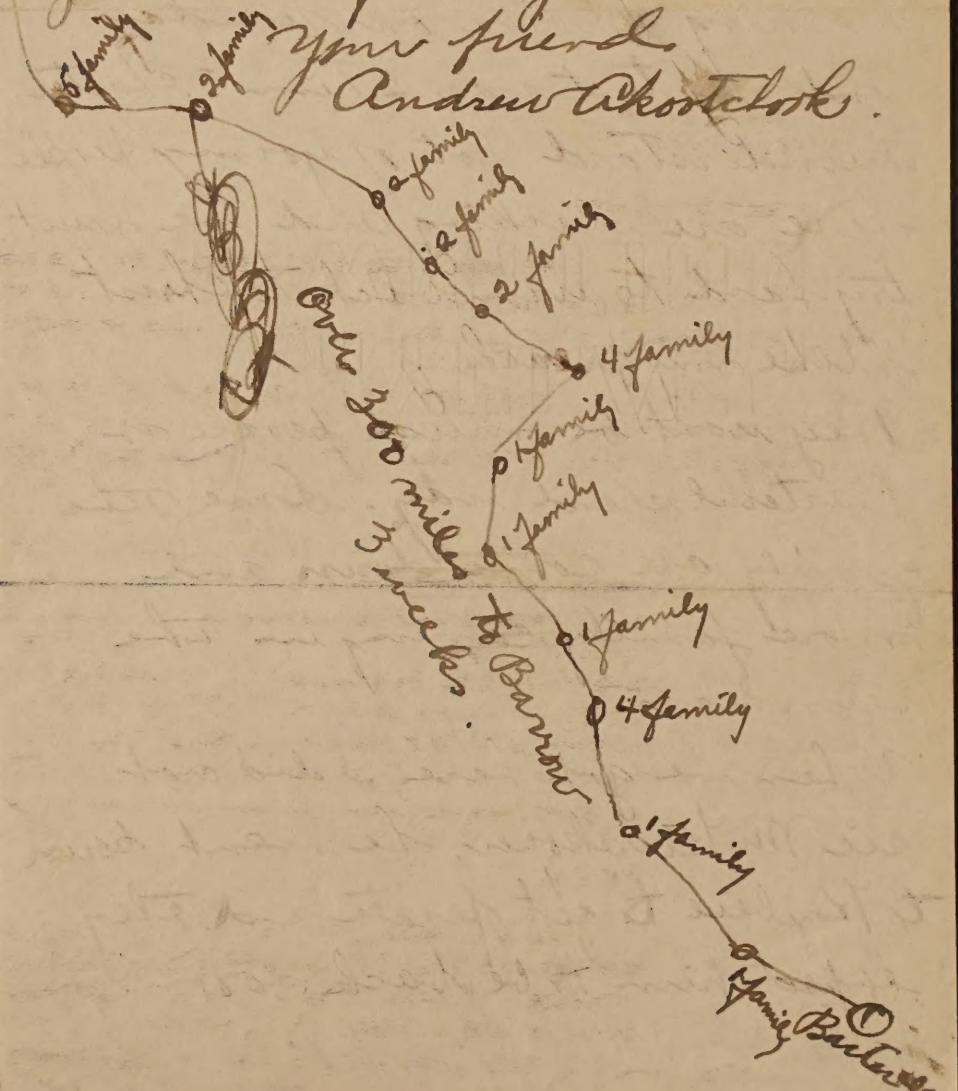 Your friend
Andrew Akootchook.
5 family
2 family
2 family
2 family
2 family
4 family
1 family
1 family
1 family
4 family
1 family
1 family
Barter
Over 300 miles to Barrow
3 weeks.